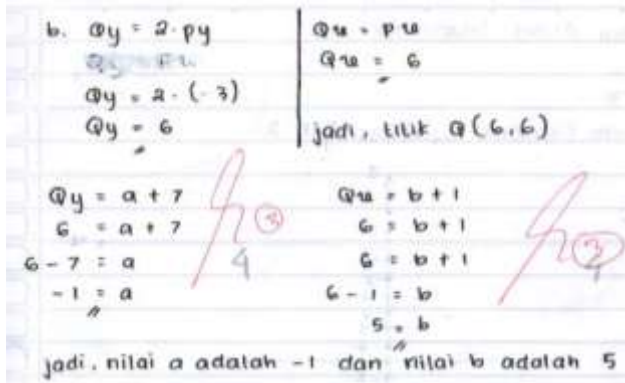 b. Qy = 2 · py
Qy = 2 · (-3)
Qy = 6
Qx = px
Qx = 6
jadi, titik Q (6,6)
Qy = a + 7
6 = a + 7
6 - 7 = a
-1 = a
3
4
Qx = b + 1
6 = b + 1
6 = b + 1
6 - 1 = b
5 = b
3
4
jadi, nilai a adalah -1 dan nilai b adalah 5